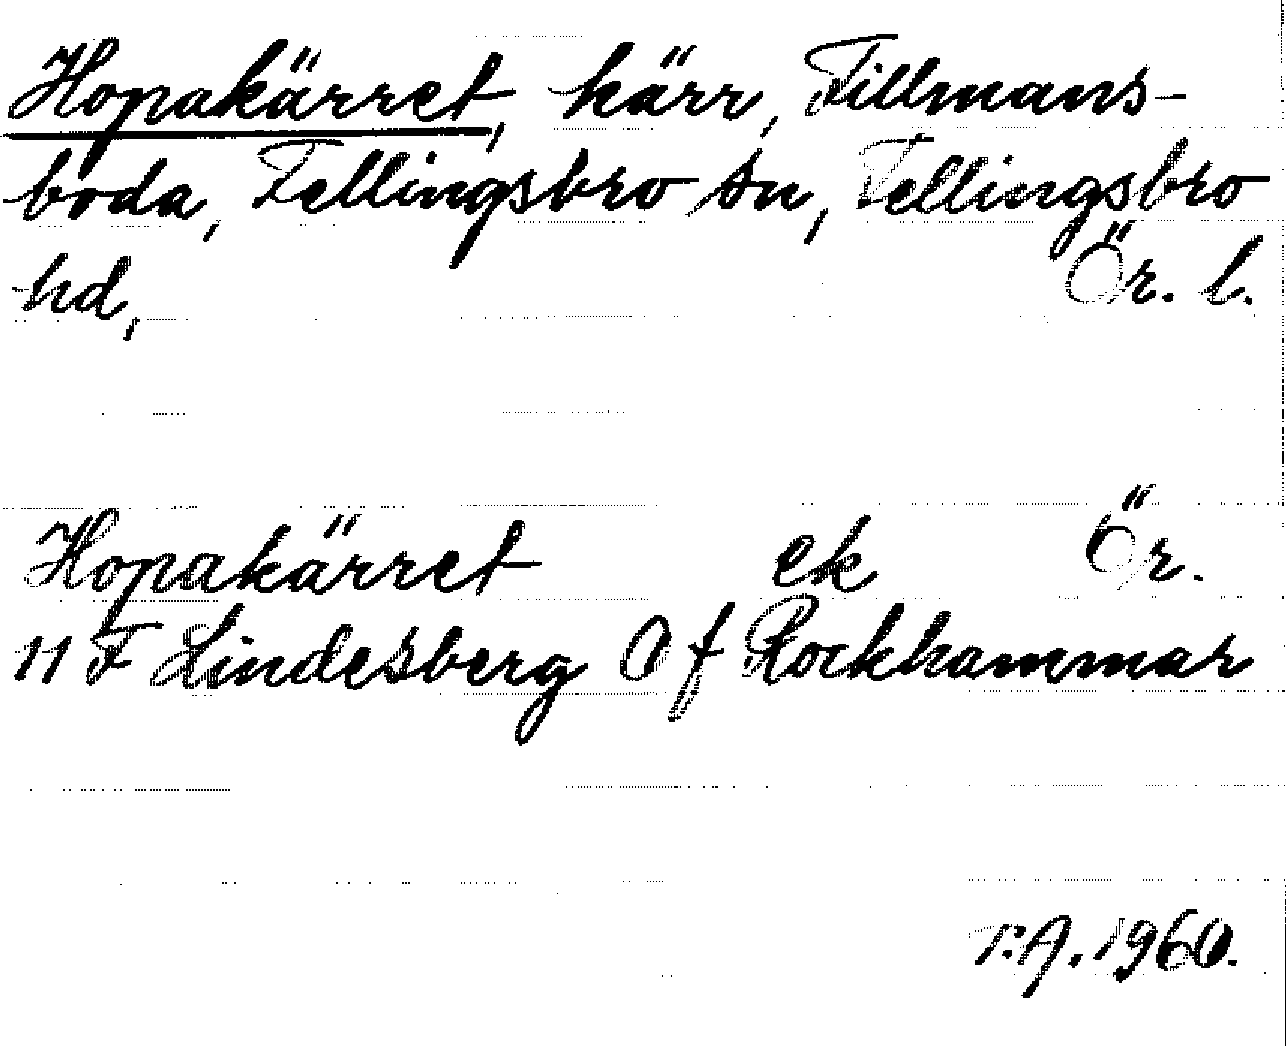 Hopakärret, kärr, Fillmans-
boda, Fellingsbro sn, Fellingsbro
hd, Ör. l.
Hopakärret ek Ör.
11 F Lindesberg 0 f Rockhammar
T.A. 1960.